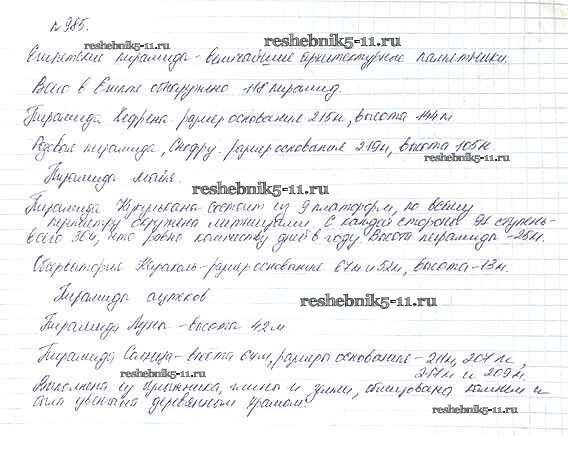 №985.
reshebnik5-11.ru reshebnik5-11.ru
Египетские пирамиды - величайшие архитектурные памятники.
Всего в Египте обнаружено 118 пирамид.
Пирамида Хефрена размер основания 215м, высота 144м
Розовая пирамида, Снофру. размер основания 219м, высота 105м.
reshebnik5-11.ru
Пирамида майя.
reshebnik5-11.ru
Пирамида Кукулькана состоит из 9 платформ, по всему
периметру окружена лестницами. С каждой стороны 91 ступень-
всего 364, что равно количеству дней в году. Высота пирамиды -25м.
Обсерватория Караколь-размер основания 67м и 52м, высота -13м.
Пирамида ацтеков
reshebnik5-11.ru
Пирамида Луны - высота 42м
Пирамида Солнца- высота 64м, размеры основания - 211м, 207м,
217м и 209м.
reshebnik5-11.ru
Выполнена из булыжника, глины и земли, облицована камнем и
была увенчана деревянным храмом.
reshebnik5-11.ru